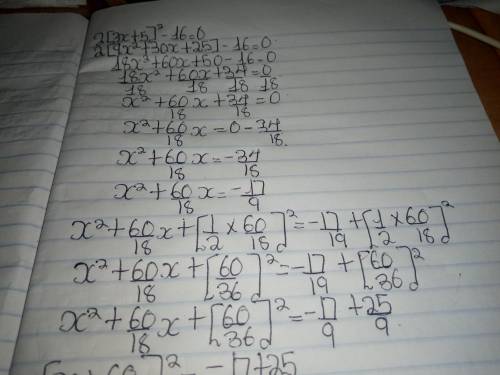 2[3x+5]²-16=0
2[9x²+30x+25]-16=0
18x²+60x+50-16=0
18x²+60x+34=0
18 18 18 18
x²+60/18x+34/18=0
x²+60/18x=0-34/18.
x²+60/18x=-34/18
x²+60/18x=-17/9
x²+60/18x+[1/2×60/18]²=-17/19+[1/2×60/18]²
x²+60/18x+[60/36]²=-17/19+[60/36]²
x²+60/18x+[60/36]²=-17/9+25/9
60]²=-17+25